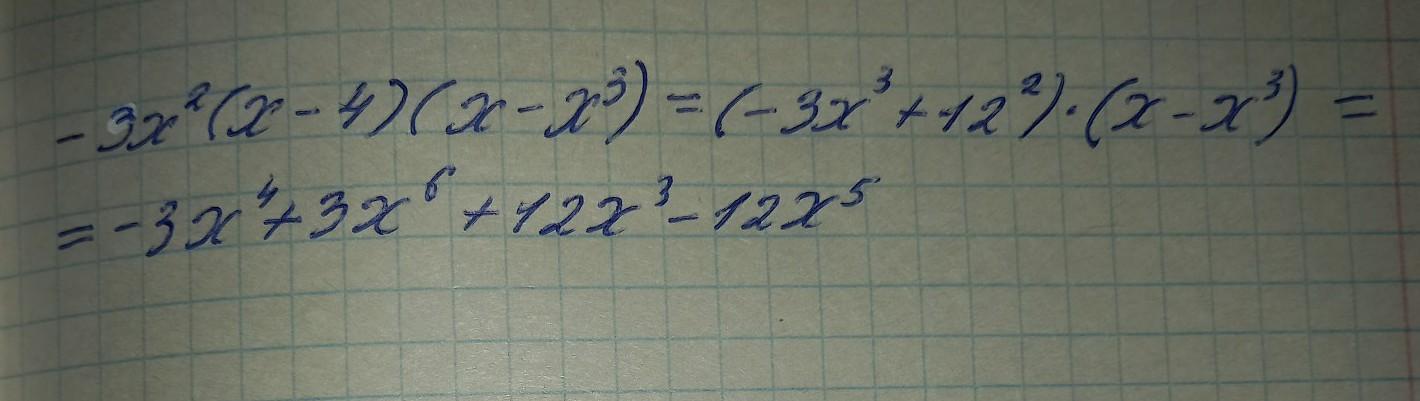 -3x²(x-4)(x-x³)=(-3x³+12²)·(x-x³)=
=-3x⁴+3x⁶+12x³-12x⁵